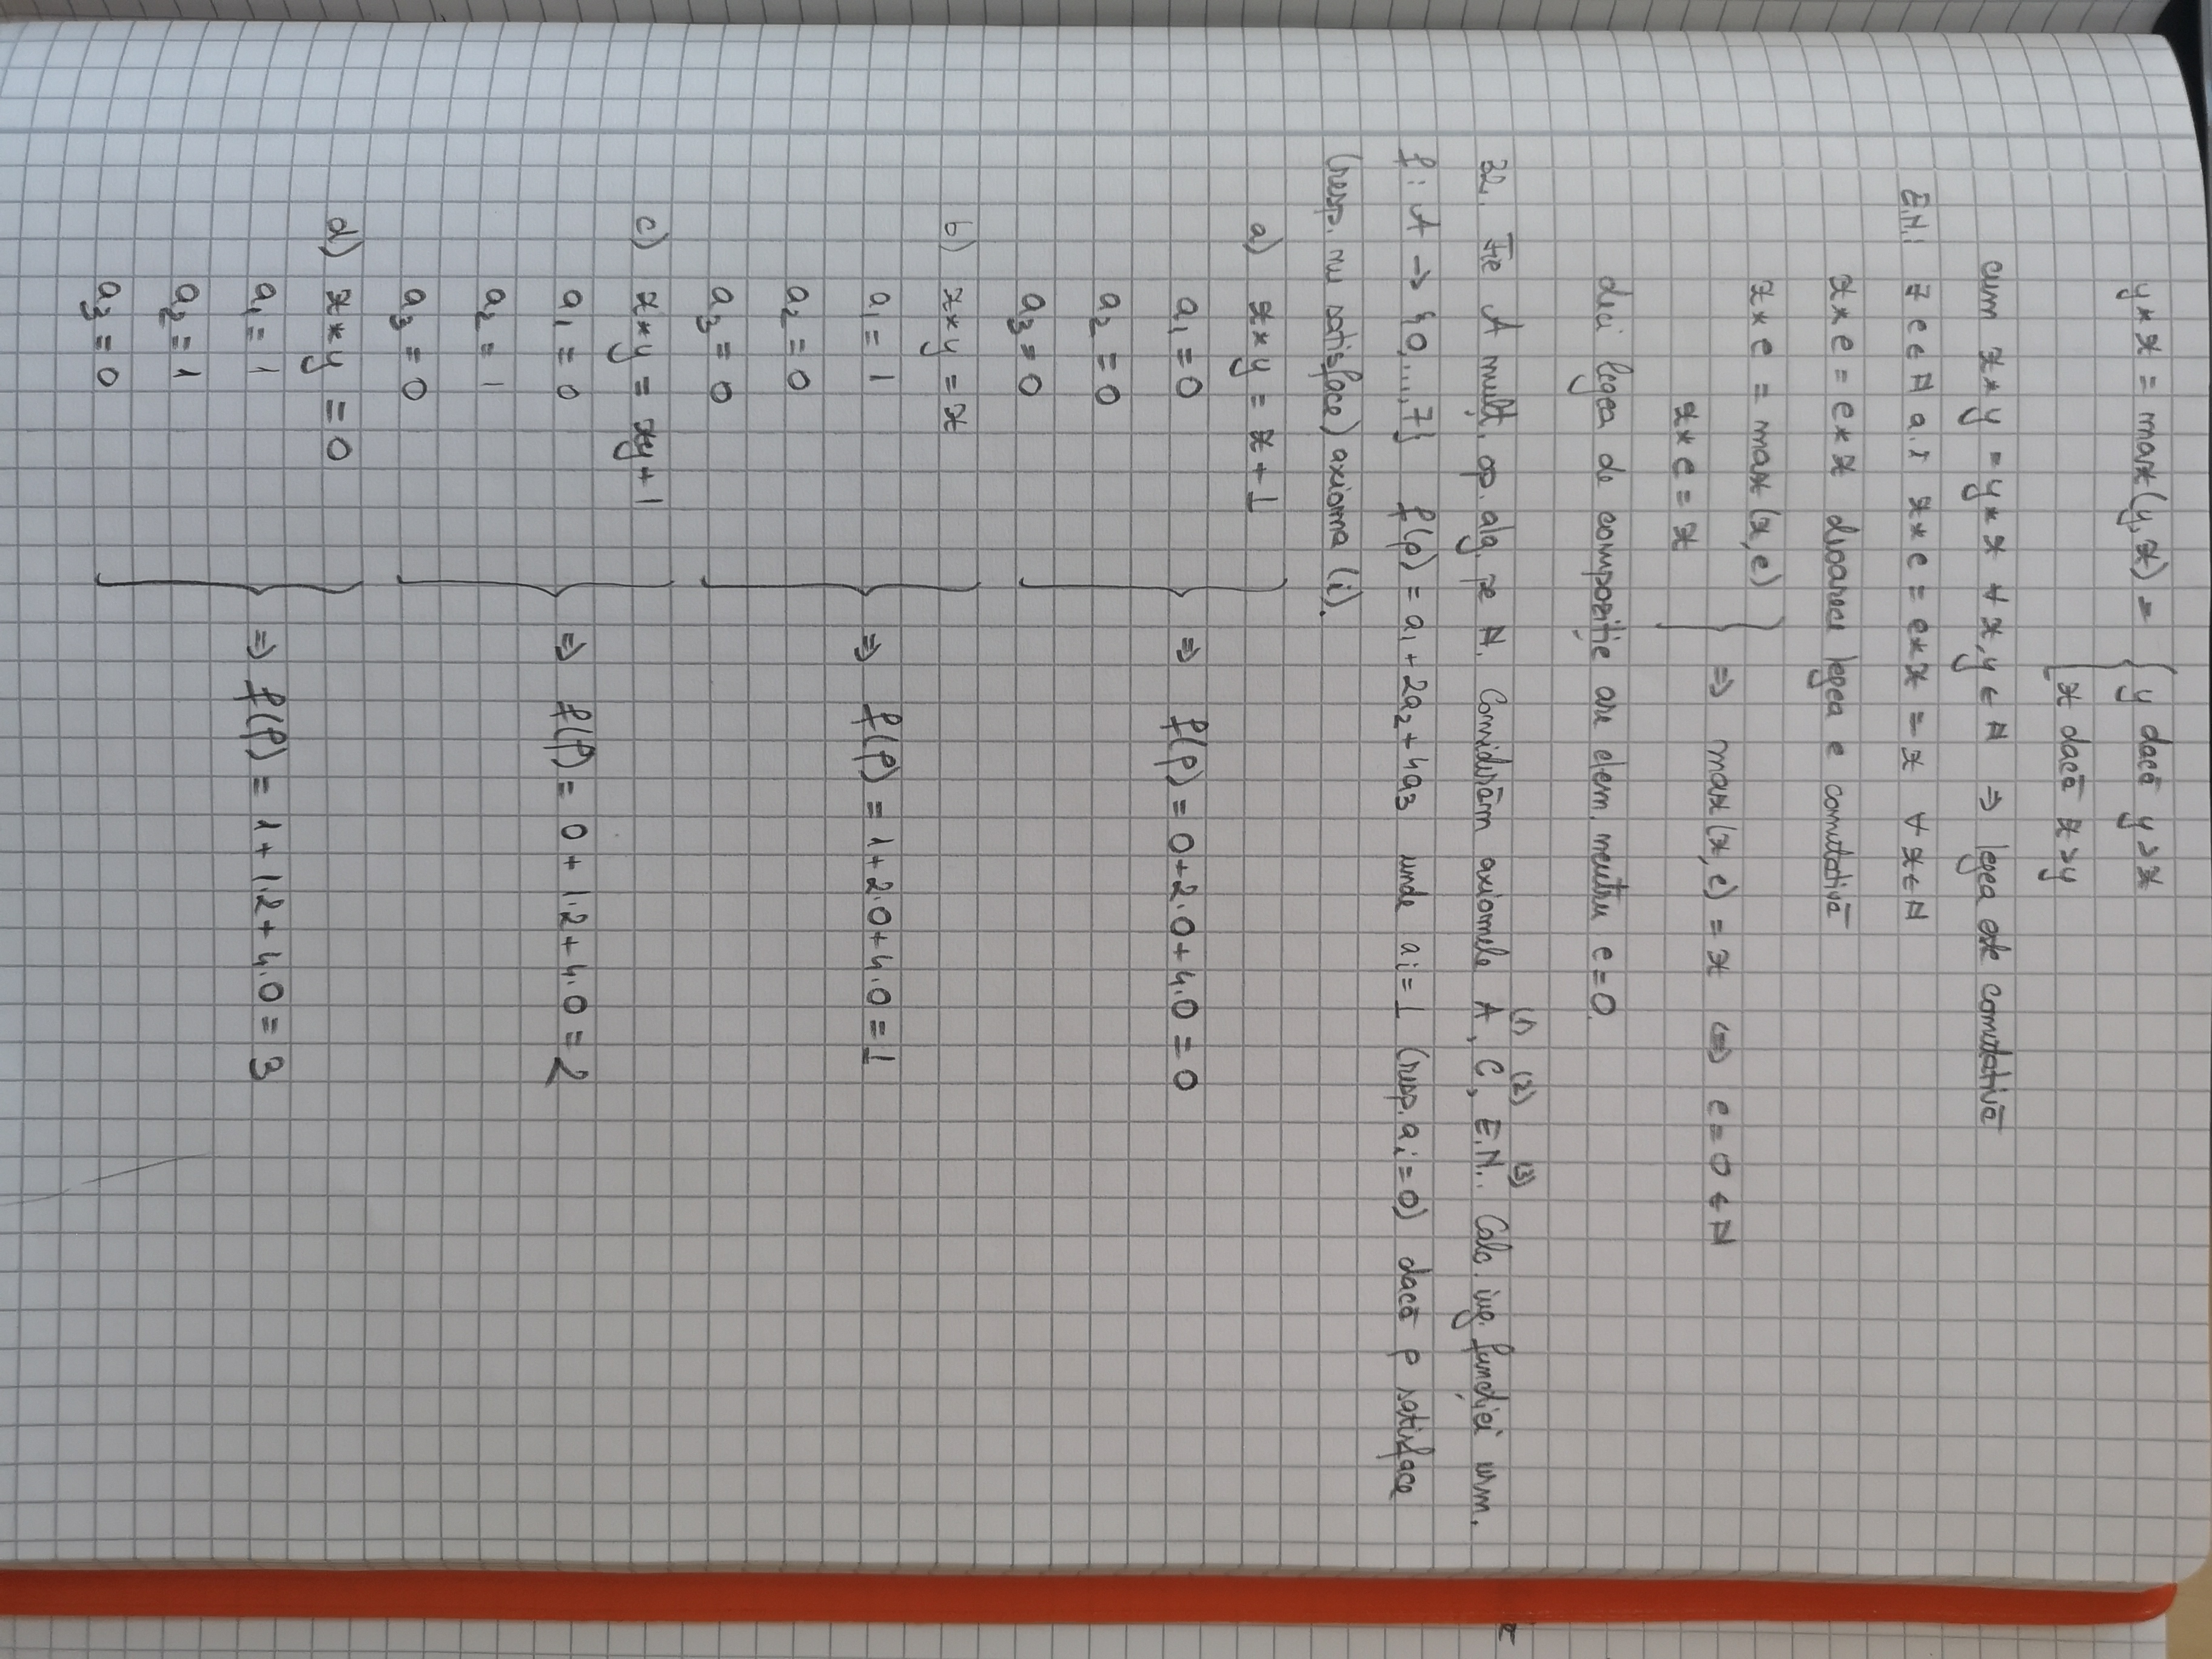 y * x = max(y, x) = { y dacă y > x
x dacă x > y
cum x * y = y * x ∀ x, y ∈ N ⇒ legea este comutativă
E.N.: ∃ e ∈ N a.î x * e = e * x = x ∀ x ∈ N
x * e = e * x deoarece legea e comutativă
x * e = max(x, e)
x * e = x } ⇒ max(x, e) = x ⇔ e = 0 ∈ N
deci legea de compoziție are elem. neutru e = 0.
(1) (2) (3)
32. Fie A mulț. op. alg. pe N. Considerăm axiomele A, C, E.N.. Calc. img. funcției urm.
f : A → {0,...,7} f(φ) = a₁ + 2a₂ + 4a₃ unde aᵢ = 1 (resp. aᵢ = 0) dacă φ satisface
(resp. nu satisface) axioma (i).
a) x * y = x + 1
a₁ = 0 ⇒ f(φ) = 0 + 2·0 + 4·0 = 0
a₂ = 0
a₃ = 0
b) x * y = x
a₁ = 1 ⇒ f(φ) = 1 + 2·0 + 4·0 = 1
a₂ = 0
a₃ = 0
c) x * y = xy + 1
a₁ = 0 ⇒ f(φ) = 0 + 1·2 + 4·0 = 2
a₂ = 1
a₃ = 0
d) x * y = 0
a₁ = 1 ⇒ f(φ) = 1 + 1·2 + 4·0 = 3
a₂ = 1
a₃ = 0